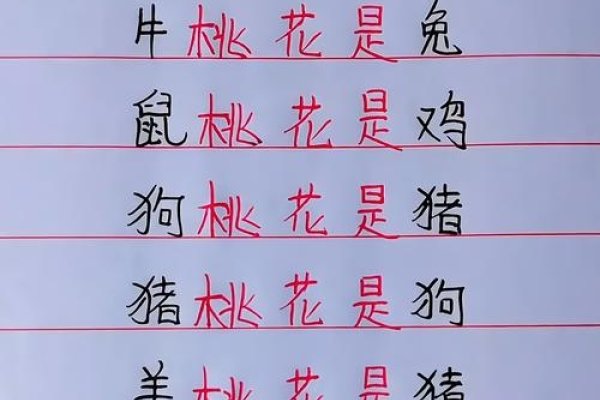 牛桃花是兔
鼠桃花是鸡
狗桃花是猪
猪桃花是狗
羊桃花是猪